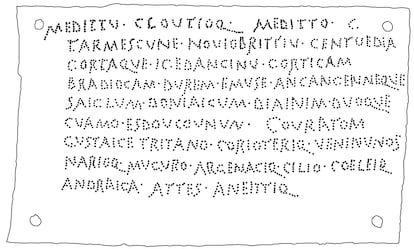 MEDITTV · CLOVTIOQ · MEDITTO · C.
TARMESCVNE · NOVIOBRITTIV · CENTVEDIA
CORTAQVE · ICEDANCINV · CORTICAM
BRADIOCAM · DVREM · EMVSE · ANCANCENNEQVE
SAICLVM · DONIAICVM · DIAINIM · DVOQVE
CVAMO · ESDOVCOVNVV · COVRATOM
GVSTAICE TRITANO · CORIOTERIQ VENINVNOS
NARIOQ MVCVRO · ARGENACIQ CILIO · COELEIQ
ANDRAICA · ATTES · ANEITTIQ